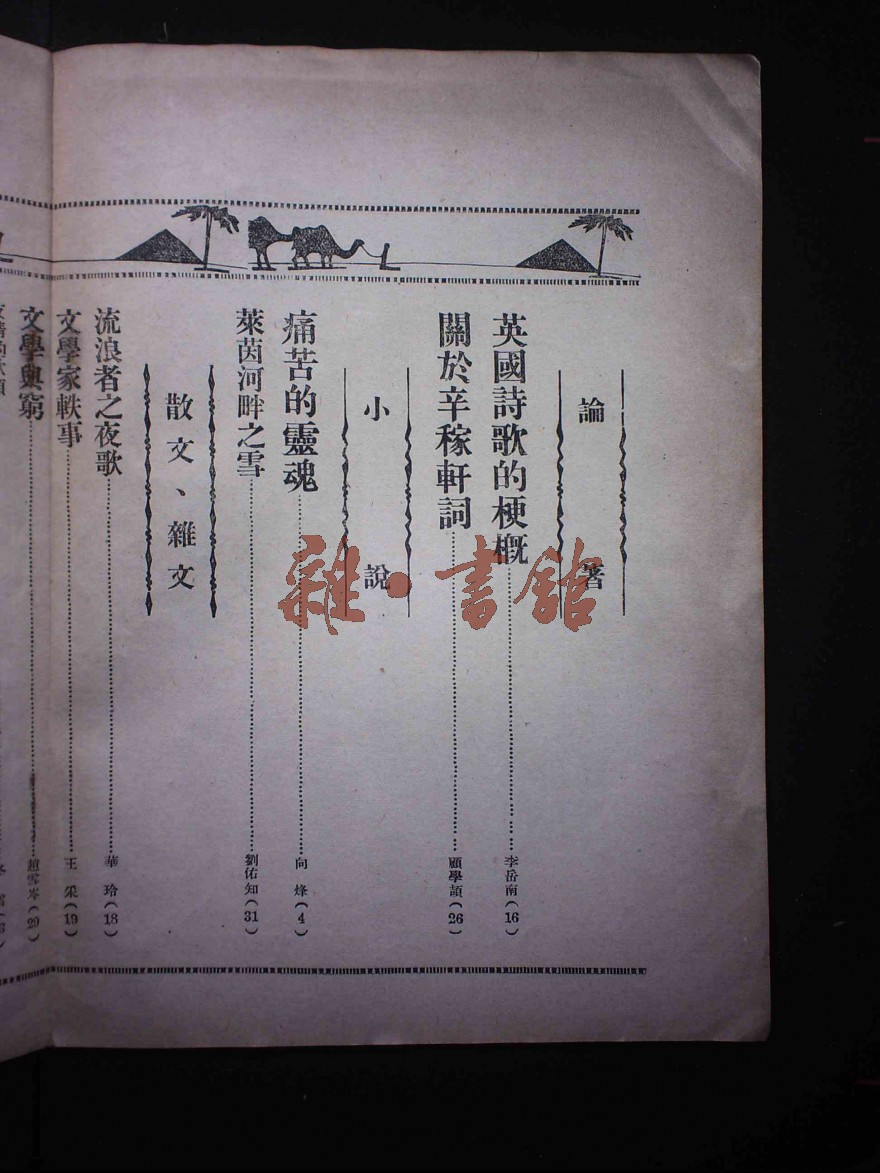 論著
英國詩歌的梗概……李岳南(16)
關於辛稼軒詞……顧學頡(26)
小說
痛苦的靈魂……向烽(4)
萊茵河畔之雪……劉佑知(31)
散文、雜文
流浪者之夜歌……華玲(18)
文學家軼事……王采(19)
文學與窮……趙雪岑(29)
雜·書館